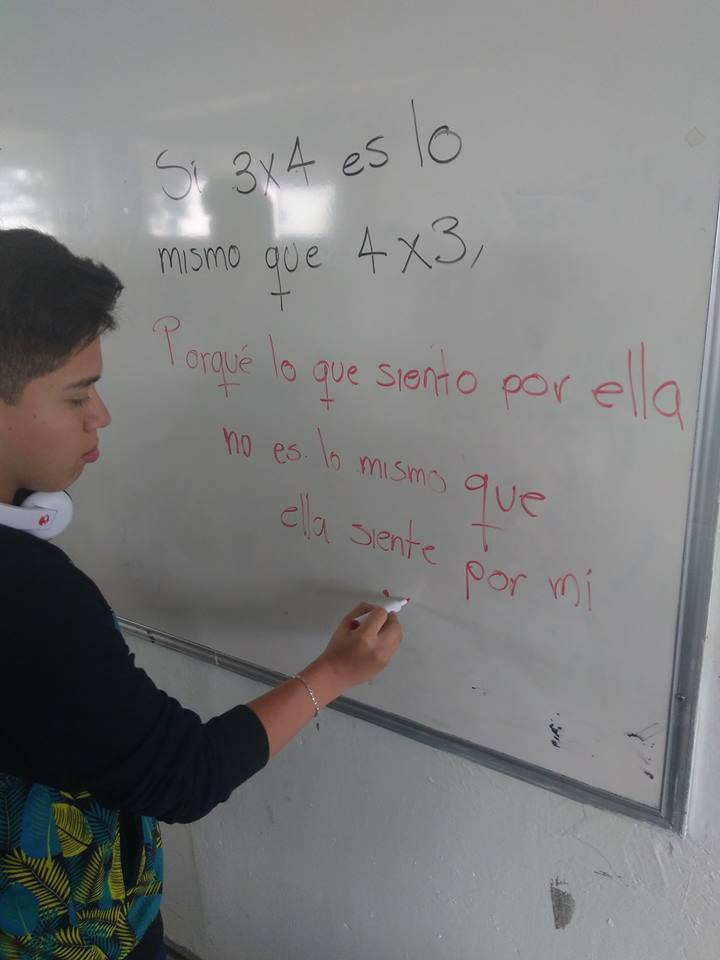 Si 3x4 es lo
mismo que 4x3,
Porqué lo que siento por ella
no es lo mismo que
ella siente por mi